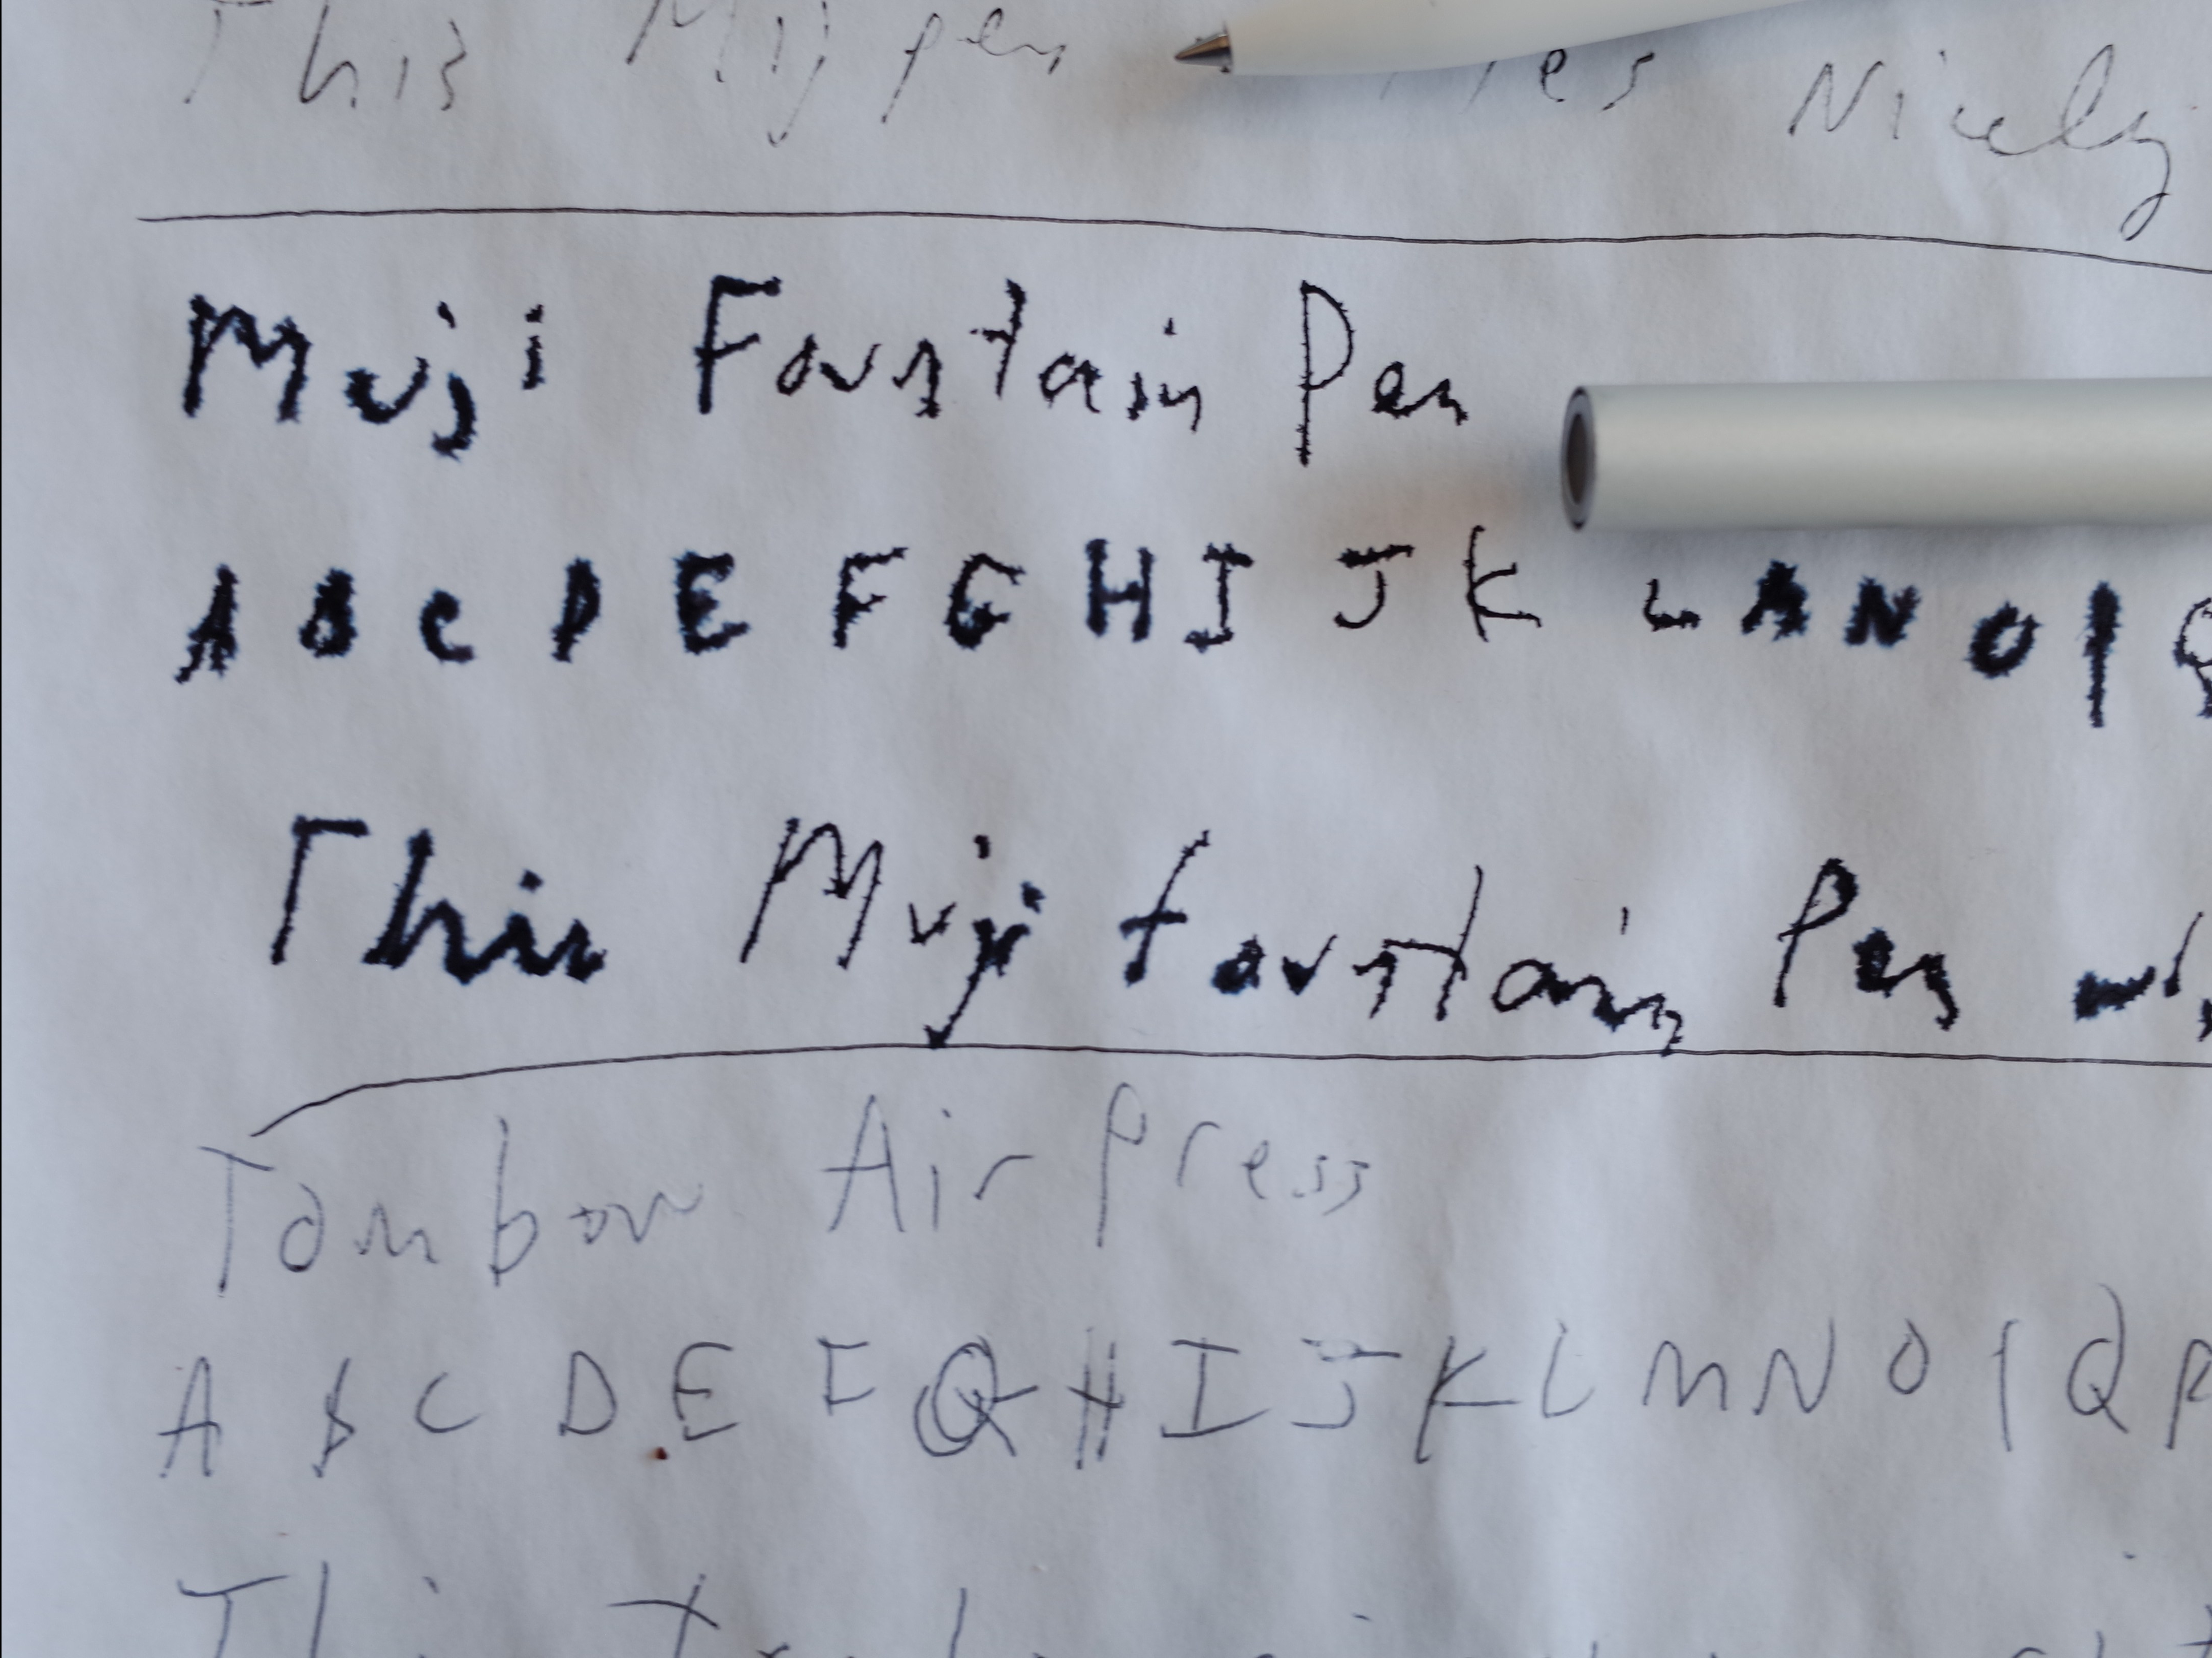 This Muji pen Nicely
Muji Fountain Pen
A B C D E F G H I J K L M N O P Q
This Muji fountain Pen
Tombow Air Press
A B C D E F G H I J K L M N O P Q R
This